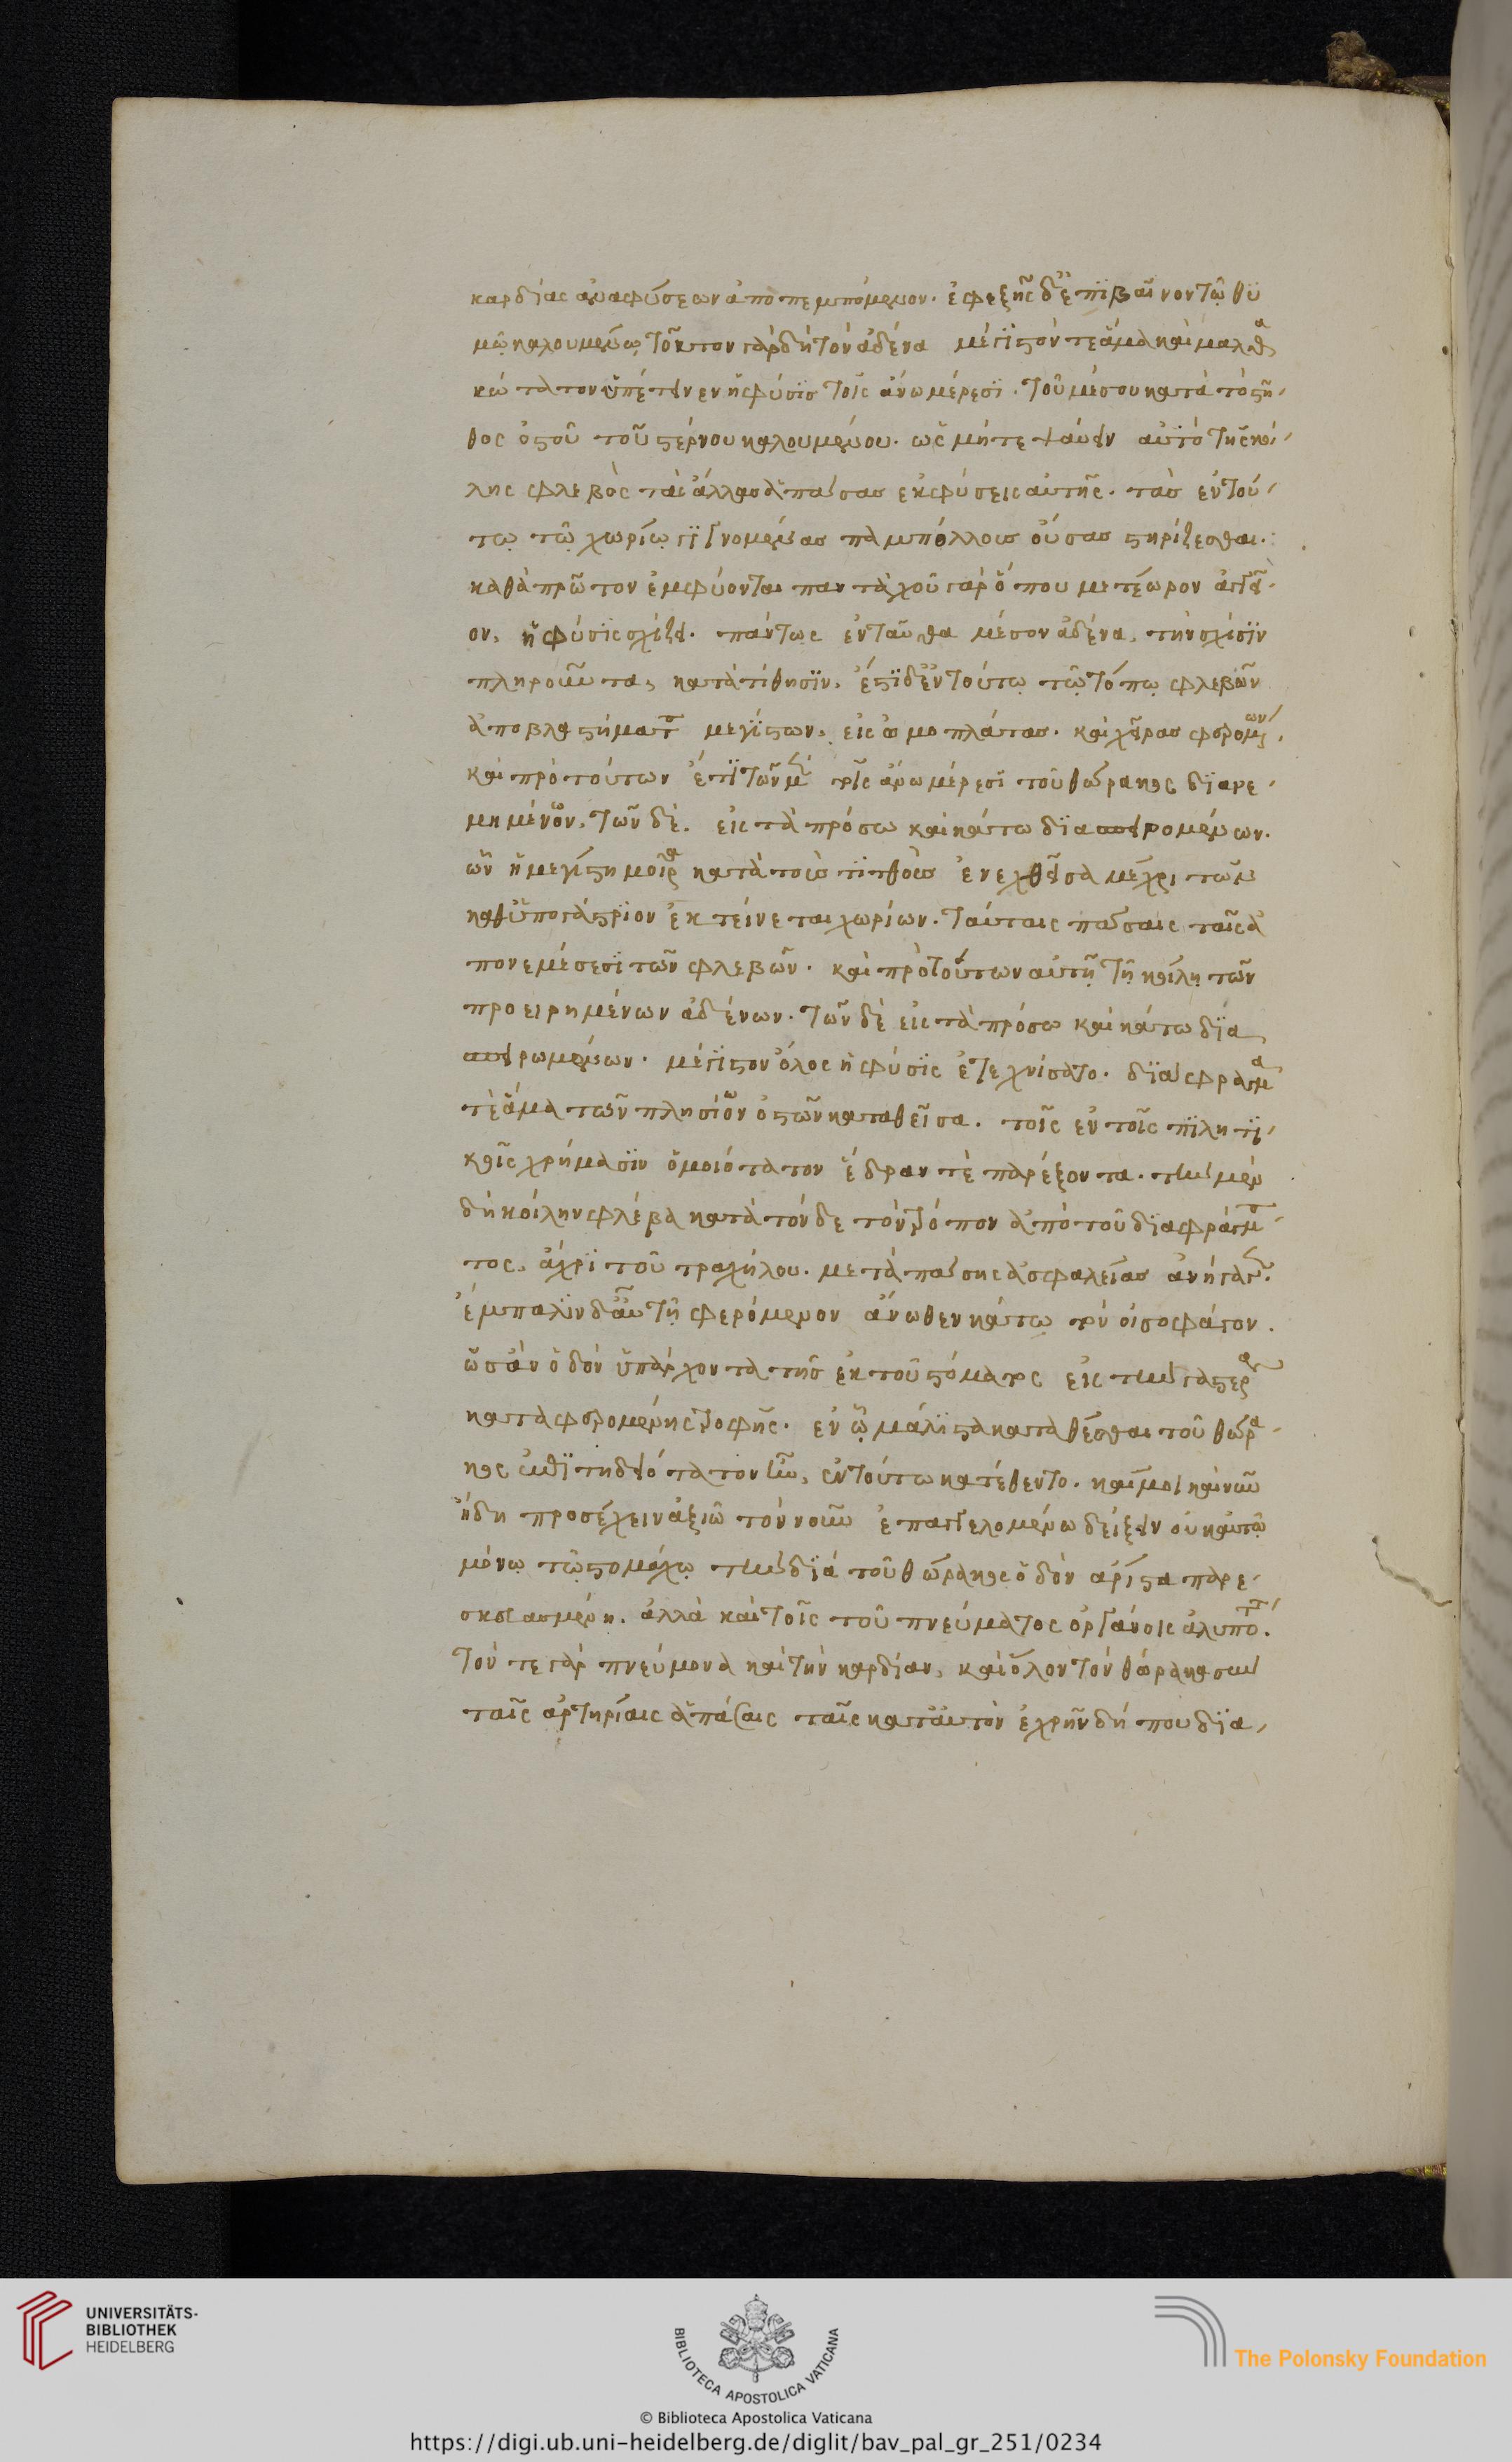 καρδίας ἀναφύσεων ἀποπεμπόμενον. ἐφεξῆς δ' ἐπϊβαῖνον τῷ θϋ
μῷ καλουμένῳ. τοῦτον γὰρ δὴ τὸν ἀδένα μέγϊστόν τε ἅμα καὶ μαλα
κώτατον ὑπέτεινεν ἡ φύσϊς τοῖς ἄνω μέρεσϊ. τοῦ μέσου κατὰ τὸ στῆ
θος ὀστοῦ τοῦ στέρνου καλουμένου. ὡς μήτε ψαύειν αὐτὸ τῆς κοί
λης φλεβὸς τάς ἄλλας ἁπάσας ἐκφύσεις αὐτῆς. τὰς ἐν τού
τῳ τῷ χωρίῳ γϊγνομένας παμπόλλους οὔσας στηρίζεσθαι.
καθὰ πρῶτον ἐμφύονται πανταχοῦ γὰρ ὅπου μετέωρον ἀγγεῖ
ον, ἡ φύσϊς σχίζει. πάντως ἐνταῦθα μέσον ἀδένα, τὴν σχίσϊν
πληροῦντα, κατατίθησϊν, ἔστϊ δ' ἐν τούτῳ τῷ τόπῳ φλεβῶν
ἀποβλαστήματα μεγίστων, εἰς ὠμοπλάτας. καὶ χεῖρας φερομένων
καὶ πρὸ τούτων ἔτϊ τῶν μὲν τοῖς ἄνω μέρεσϊ τοῦ θώρακος δϊανε
μημένων, τῶν δὲ. εἰς τὰ πρόσω καὶ κάτω δϊασπειρομένων.
ὧν ἡ μεγίστη μοῖρα κατὰ τοὺς τϊτθοὺς ἐνεχθεῖσα μέχρι τῶν
καθ' ὑπογάστριον ἐκτείνεται χωρίων. ταύταις πάσαις ταῖς ἀ
πονεμέσεσϊ τῶν φλεβῶν. καὶ πρὸ τούτων αὐτῇ τῇ κοίλῃ τῶν
προειρημένων ἀδένων. τῶν δὲ εἰς τὰ πρόσω καὶ κάτω δϊα
σπειρωμένων. μέγϊστον ὅλος ἡ φύσϊς ἐτεχνίσατο. δϊάφραγμα
τὲ ἅμα τῶν πλησίον ὀστῶν καταθεῖσα. τοῖς ἐν τοῖς πϊλητϊ
κοῖς χρήμασϊν ὁμοιότατον ἕδραν τὲ παρέξοντα. τὴν μὲν
δὴ κοίλην φλέβα κατὰ τόνδε τὸν τρόπον ἀπὸ τοῦ δϊαφράγμα
τος, ἄχρϊ τοῦ τραχήλου. μετὰ πάσης ἀσφαλείας ἀνήγαγεν.
ἔμπαλϊν δ' αὐτῇ φερόμενον ἄνωθεν κάτω τὸν οἰσοφάγον.
ὡσὰν ὁδὸν ὑπάρχοντα τῆς ἐκ τοῦ στόματος εἰς τὴν γαστέρα
καταφερομένης τροφῆς. ἐν ᾧ μάλϊστα καταθέσθαι τοῦ θώρα
κος ἐπϊτηδειότατον ἦν, ἐν τούτω κατέθεντο. καί μοι καὶ νῦν
ἤδη προσέχειν ἀξιῶ τὸν νοῦν ἐπαγγελομένω δείξειν οὐκ αὐτῷ
μόνῳ τῷ στομάχῳ τὴν δϊὰ τοῦ θώρακος ὁδὸν ἄριστα παρε
σκευασμένη. ἀλλὰ καὶ τοῖς τοῦ πνεύματος ὀργάνοις ἀλυπο.
τόν τε γὰρ πνεύμονα καὶ τὴν καρδίαν, καὶ ὅλον τὸν θώρακα σὺν
ταῖς ἀρτηρίαις ἁπάσαις ταῖς κατ' αὐτὸν ἐχρῆν δή που δϊα
UNIVERSITÄTS-
BIBLIOTHEK
HEIDELBERG
BIBLIOTECA APOSTOLICA VATICANA
The Polonsky Foundation
© Biblioteca Apostolica Vaticana
https://digi.ub.uni-heidelberg.de/diglit/bav_pal_gr_251/0234